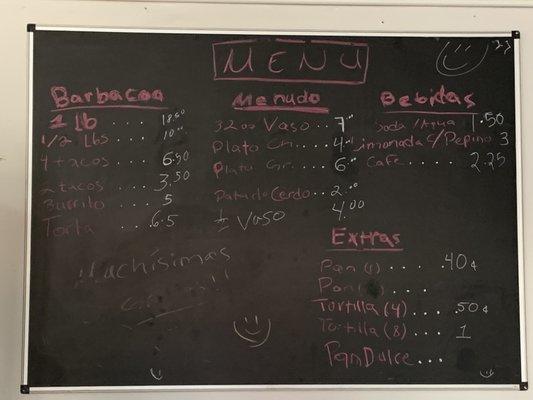 MENU
Barbacoa
1 lb .... 18.50
1/2 Lbs .... 10.00
4 tacos .... 6.50
2 tacos .... 3.50
Burrito .... 5
Torta ....6.5
Muchísimas
Menudo
32 oz Vaso .. 7.00
Plato Ch. ... 4.00
Plato Gr. ... 6.00
Pata de Cerdo ... 2.00
1/2 Vaso 4.00
Bebidas
Soda /Agua 1.50
Limonada c/ Pepino 3
Cafe ..... 2.25
Extras
Pan (1) .... .40¢
Pan ....
Tortilla (4) .... .50¢
Tortilla (8) .... 1
Pan Dulce ...